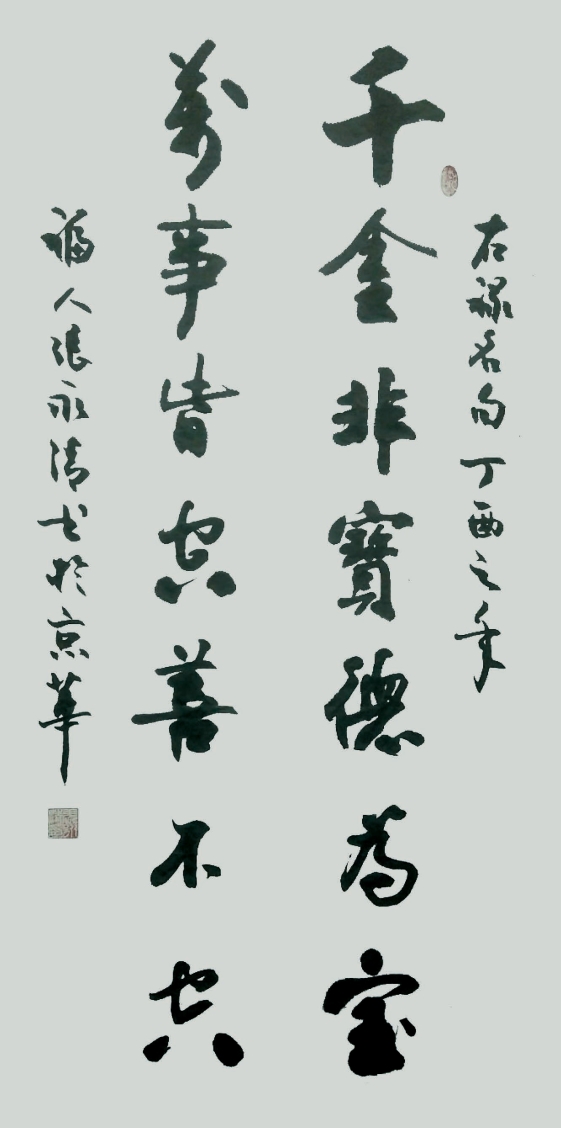 右禄名句丁酉之年
千金非寶德為宝
萬事皆空善不空
福人張永清书於京華